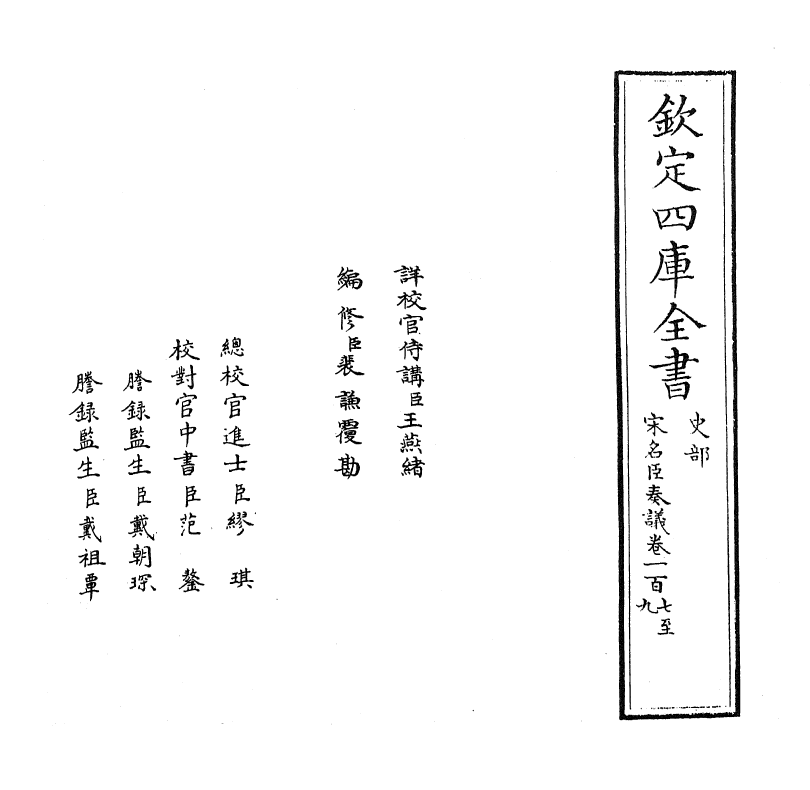 欽定四庫全書
史部
宋名臣奏議卷一百七至九
詳校官侍講臣王燕緒
編修臣裴謙覆勘
總校官進士臣繆琪
校對官中書臣范鏊
謄錄監生臣戴朝琛
謄錄監生臣戴祖覃